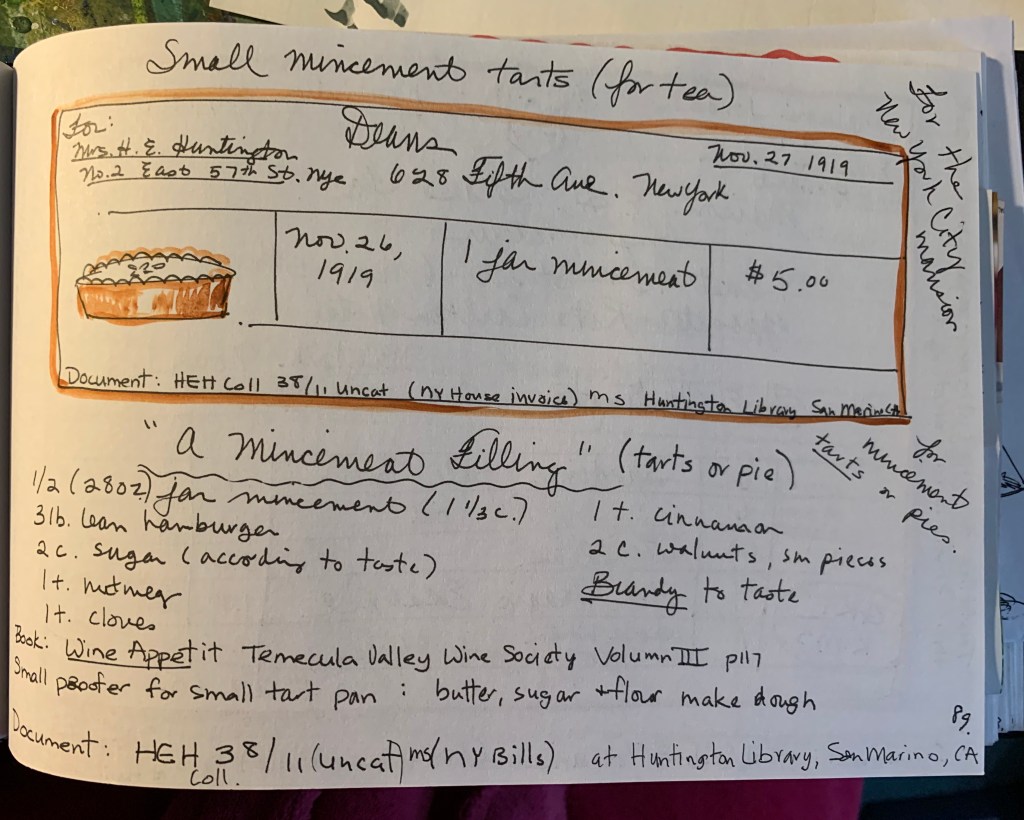 Small mincement tarts (for tea)
For the
New York City
mansion
For:
Mrs. H. E. Huntington
No. 2 East 57th St. nyc
Deans
628 Fifth Ave. New York
Nov. 27 1919
Nov. 26,
1919
1 jar mincement
$5.00
Document: HEH Coll 38/11 uncat (NY House invoice) ms Huntington Library San Marino CA
"A Mincemeat Filling" (tarts or pie)
for
mincement
tarts or
pies.
1/2 (28oz) jar mincement (1 1/3 c.)
3 lb. lean hamburger
2 c. sugar (according to taste)
1 t. nutmeg
1 t. cloves
1 t. cinnamaon
2 c. walnuts, sm pieces
Brandy to taste
Book: Wine Appetit Temecula Valley Wine Society Volumn III p117
Small poofer for small tart pan : butter, sugar + flour make dough
89.
Document: HEH Coll. 38/11 (uncat) ms (NY Bills) at Huntington Library, San Marino, CA